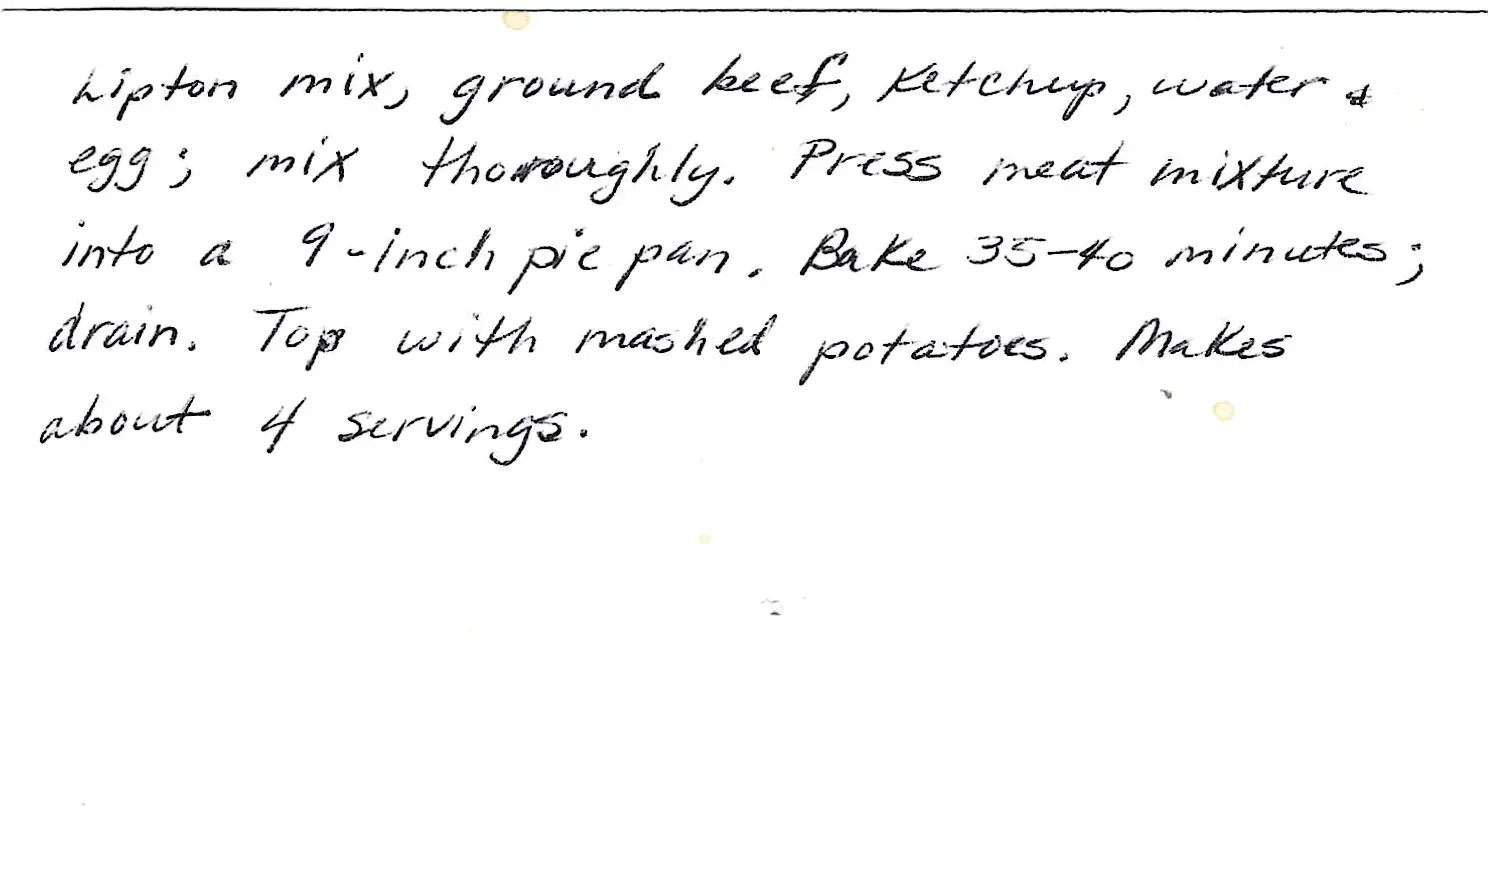 Lipton mix, ground beef, Ketchup, water &
egg; mix thoroughly. Press meat mixture
into a 9-inch pie pan. Bake 35-40 minutes;
drain. Top with mashed potatoes. Makes
about 4 servings.